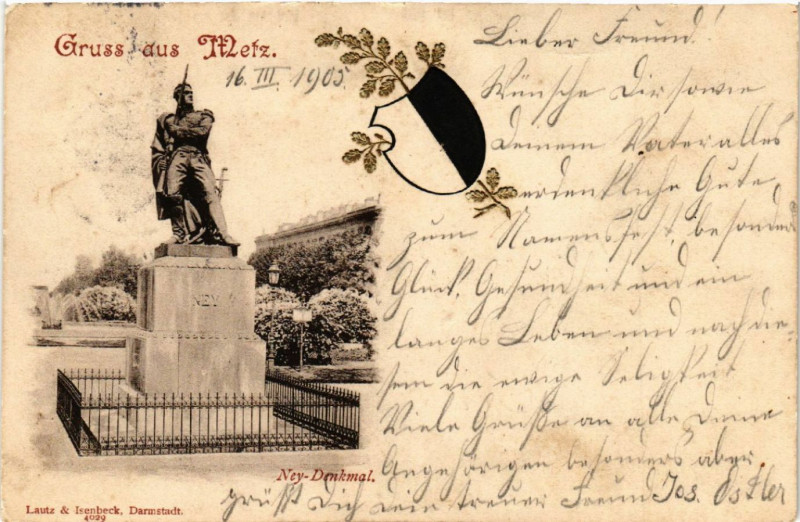 Gruss aus Metz.
16. III. 1905.
Lieber Freund!
Wünsche Dir sowie
Deinem Vater alles
erdenkliche Gute
zum Namensfest, besonders
Glück, Gesundheit und ein
langes Leben und nach die-
sem die ewige Seligkeit
Viele Grüße an alle Deine
Angehörigen besonders aber
grüßt Dich dein treuer Freund Jos. Ostler
NEY
Ney-Denkmal.
Lautz & Isenbeck, Darmstadt.
4029